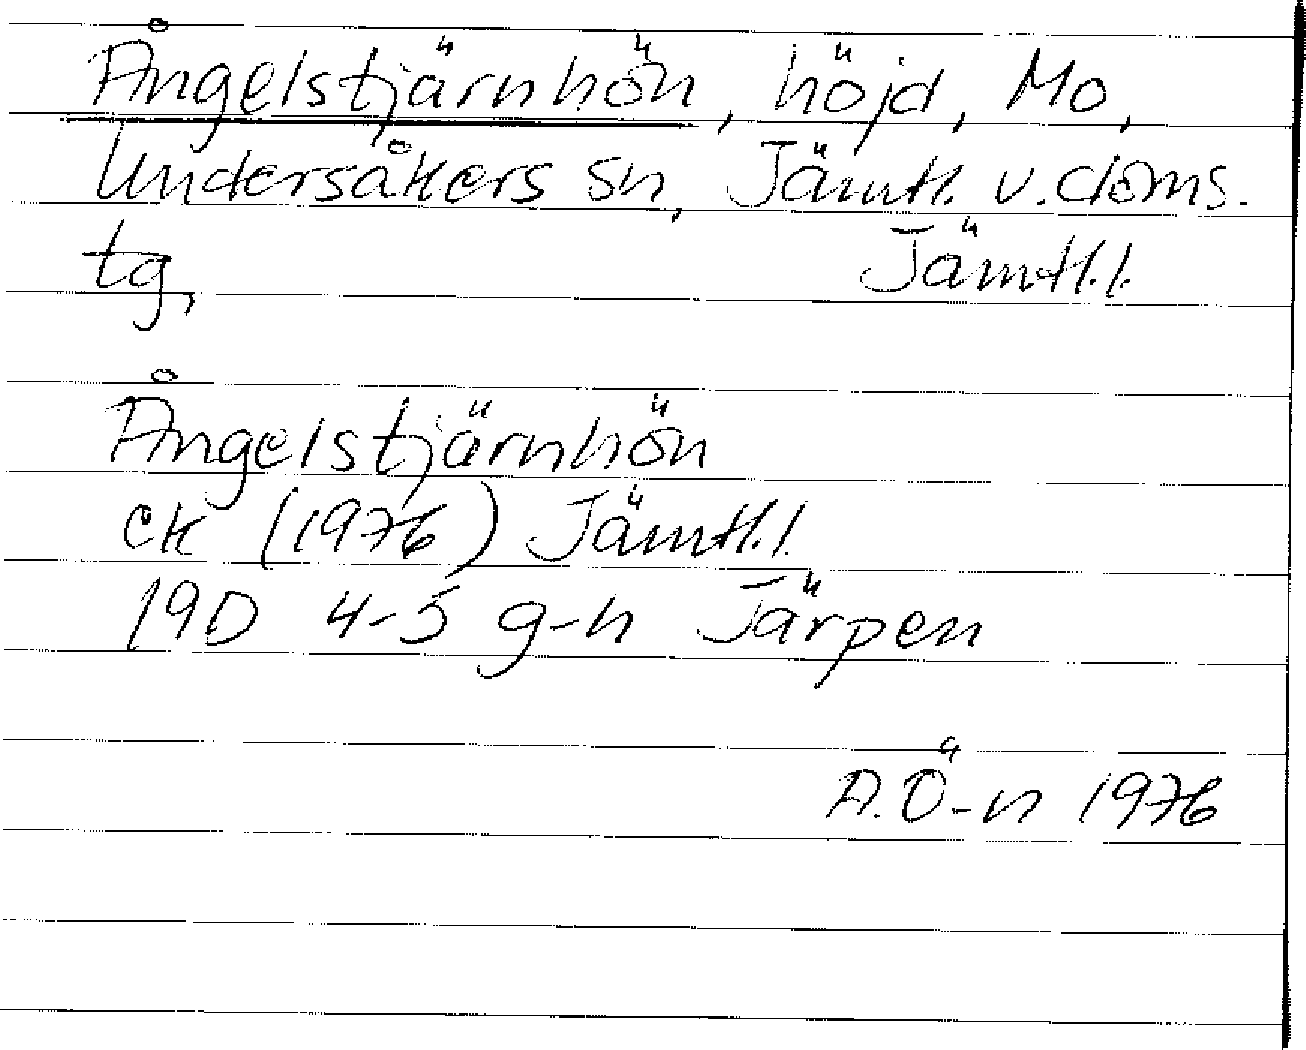 Ångelstjärnhön, höjd, Mo,
Undersåkers sn, Jämtl. v. doms.
tg, Jämtl.l.
Ångelstjärnhön
ek (1976) Jämtl.l.
19D 4-5 g-h Järpen
A.Ö-n 1976